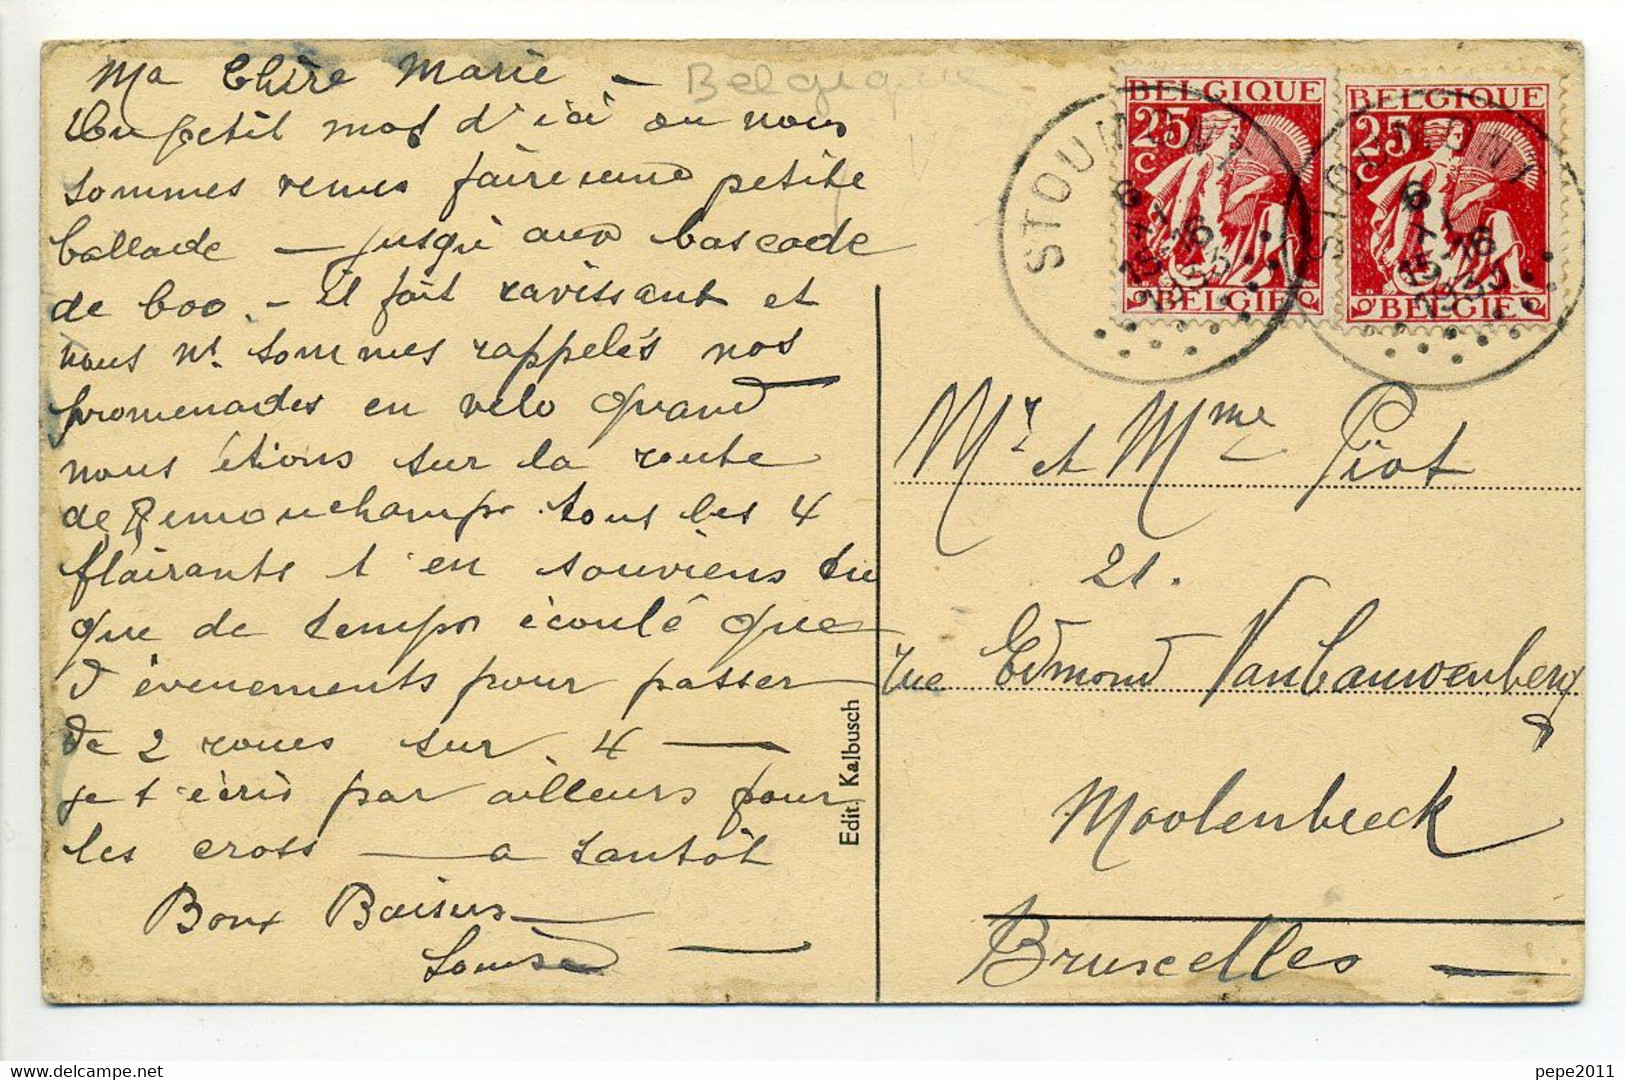 Ma Chère Marie —
Belgique
Un petit mot d'ici ou nous
sommes venus faire une petite
ballade — jusqu'aux cascade
de Coo. — il fait ravissant et
nous ns. sommes rappelés nos
promenades en vélo quand
nous étions sur la route
de Remouchamps tous les 4
flairants t'en souviens tu
que de temps écoulé que
d'évenements pour passer
de 2 roues sur 4 —
je t'écris par ailleurs pour
les cross — a tantôt
Bons Baisers
Louise
Edit. Kalbusch
BELGIQUE
25
C
BELGIE
BELGIQUE
25
C
BELGIE
STOUMONT
6
16
1935
STOUMONT
6
16
1935
Mr et Mme Piot
21.
rue Edmond Vancauwenberg
Moolenbeeck
Bruxelles
pepe2011